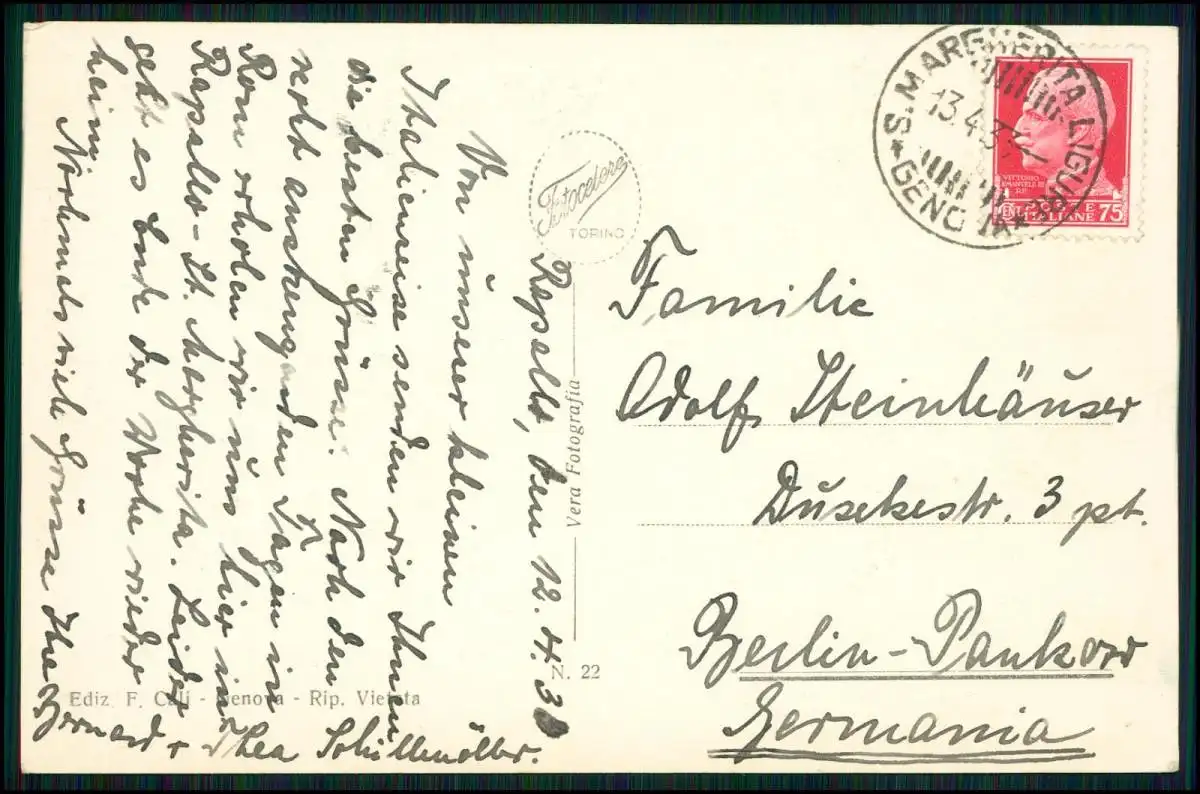 Rapallo, den 12.4.3
Von unserer kleinen
Italienreise senden wir Ihnen
die besten Grüsse. Nach den
recht anstrengenden Tagen in
Rom erholen wir uns hier in
Rapallo - St. Margherita. Leider
geht es Ende der Woche wieder
heim
Nochmals viele Grüsse Ihre
Bernard + Thea
Fotocelere
TORINO
Vera Fotografia
N. 22
Ediz. F. Cali - Genova - Rip. Vietata
S. MARGHERITA LIGURE
13.4.3
* GENOVA *
VITTORIO
EMANUELE III
RE
POSTE
CENT. ITALIANE 75
Familie
Adolf Steinhäuser
Dusekestr. 3 pt.
Berlin-Pankow
Germania